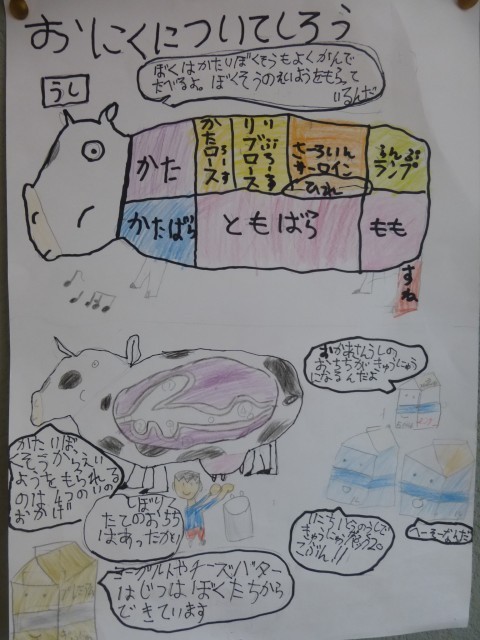 おにくについてしろう
ぼくはかたいぼくそうもよくかんで
たべるよ。ぼくそうのえいようをもらって
いるんだ
うし
かた
かたロース
ろーす
リブロース
りぶろーす
さーろいん
サーロイン
ひれ
らんぷ
ランプ
かたばら
ともばら
もも
すね
おかあさんうしの
おちちがぎゅうにゅう
になるんだよ
かたいぼ
くそうから、えい
ようをもられる
のは4つのいの
おかげ
しぼり
たてのおちち
はあったかい
いちにち1とうのうしで
ぎゅうにゅう
こぶん!!
へーそーなんだ
ヨーグルトやチーズバター
はじつはぼくたちから
できています